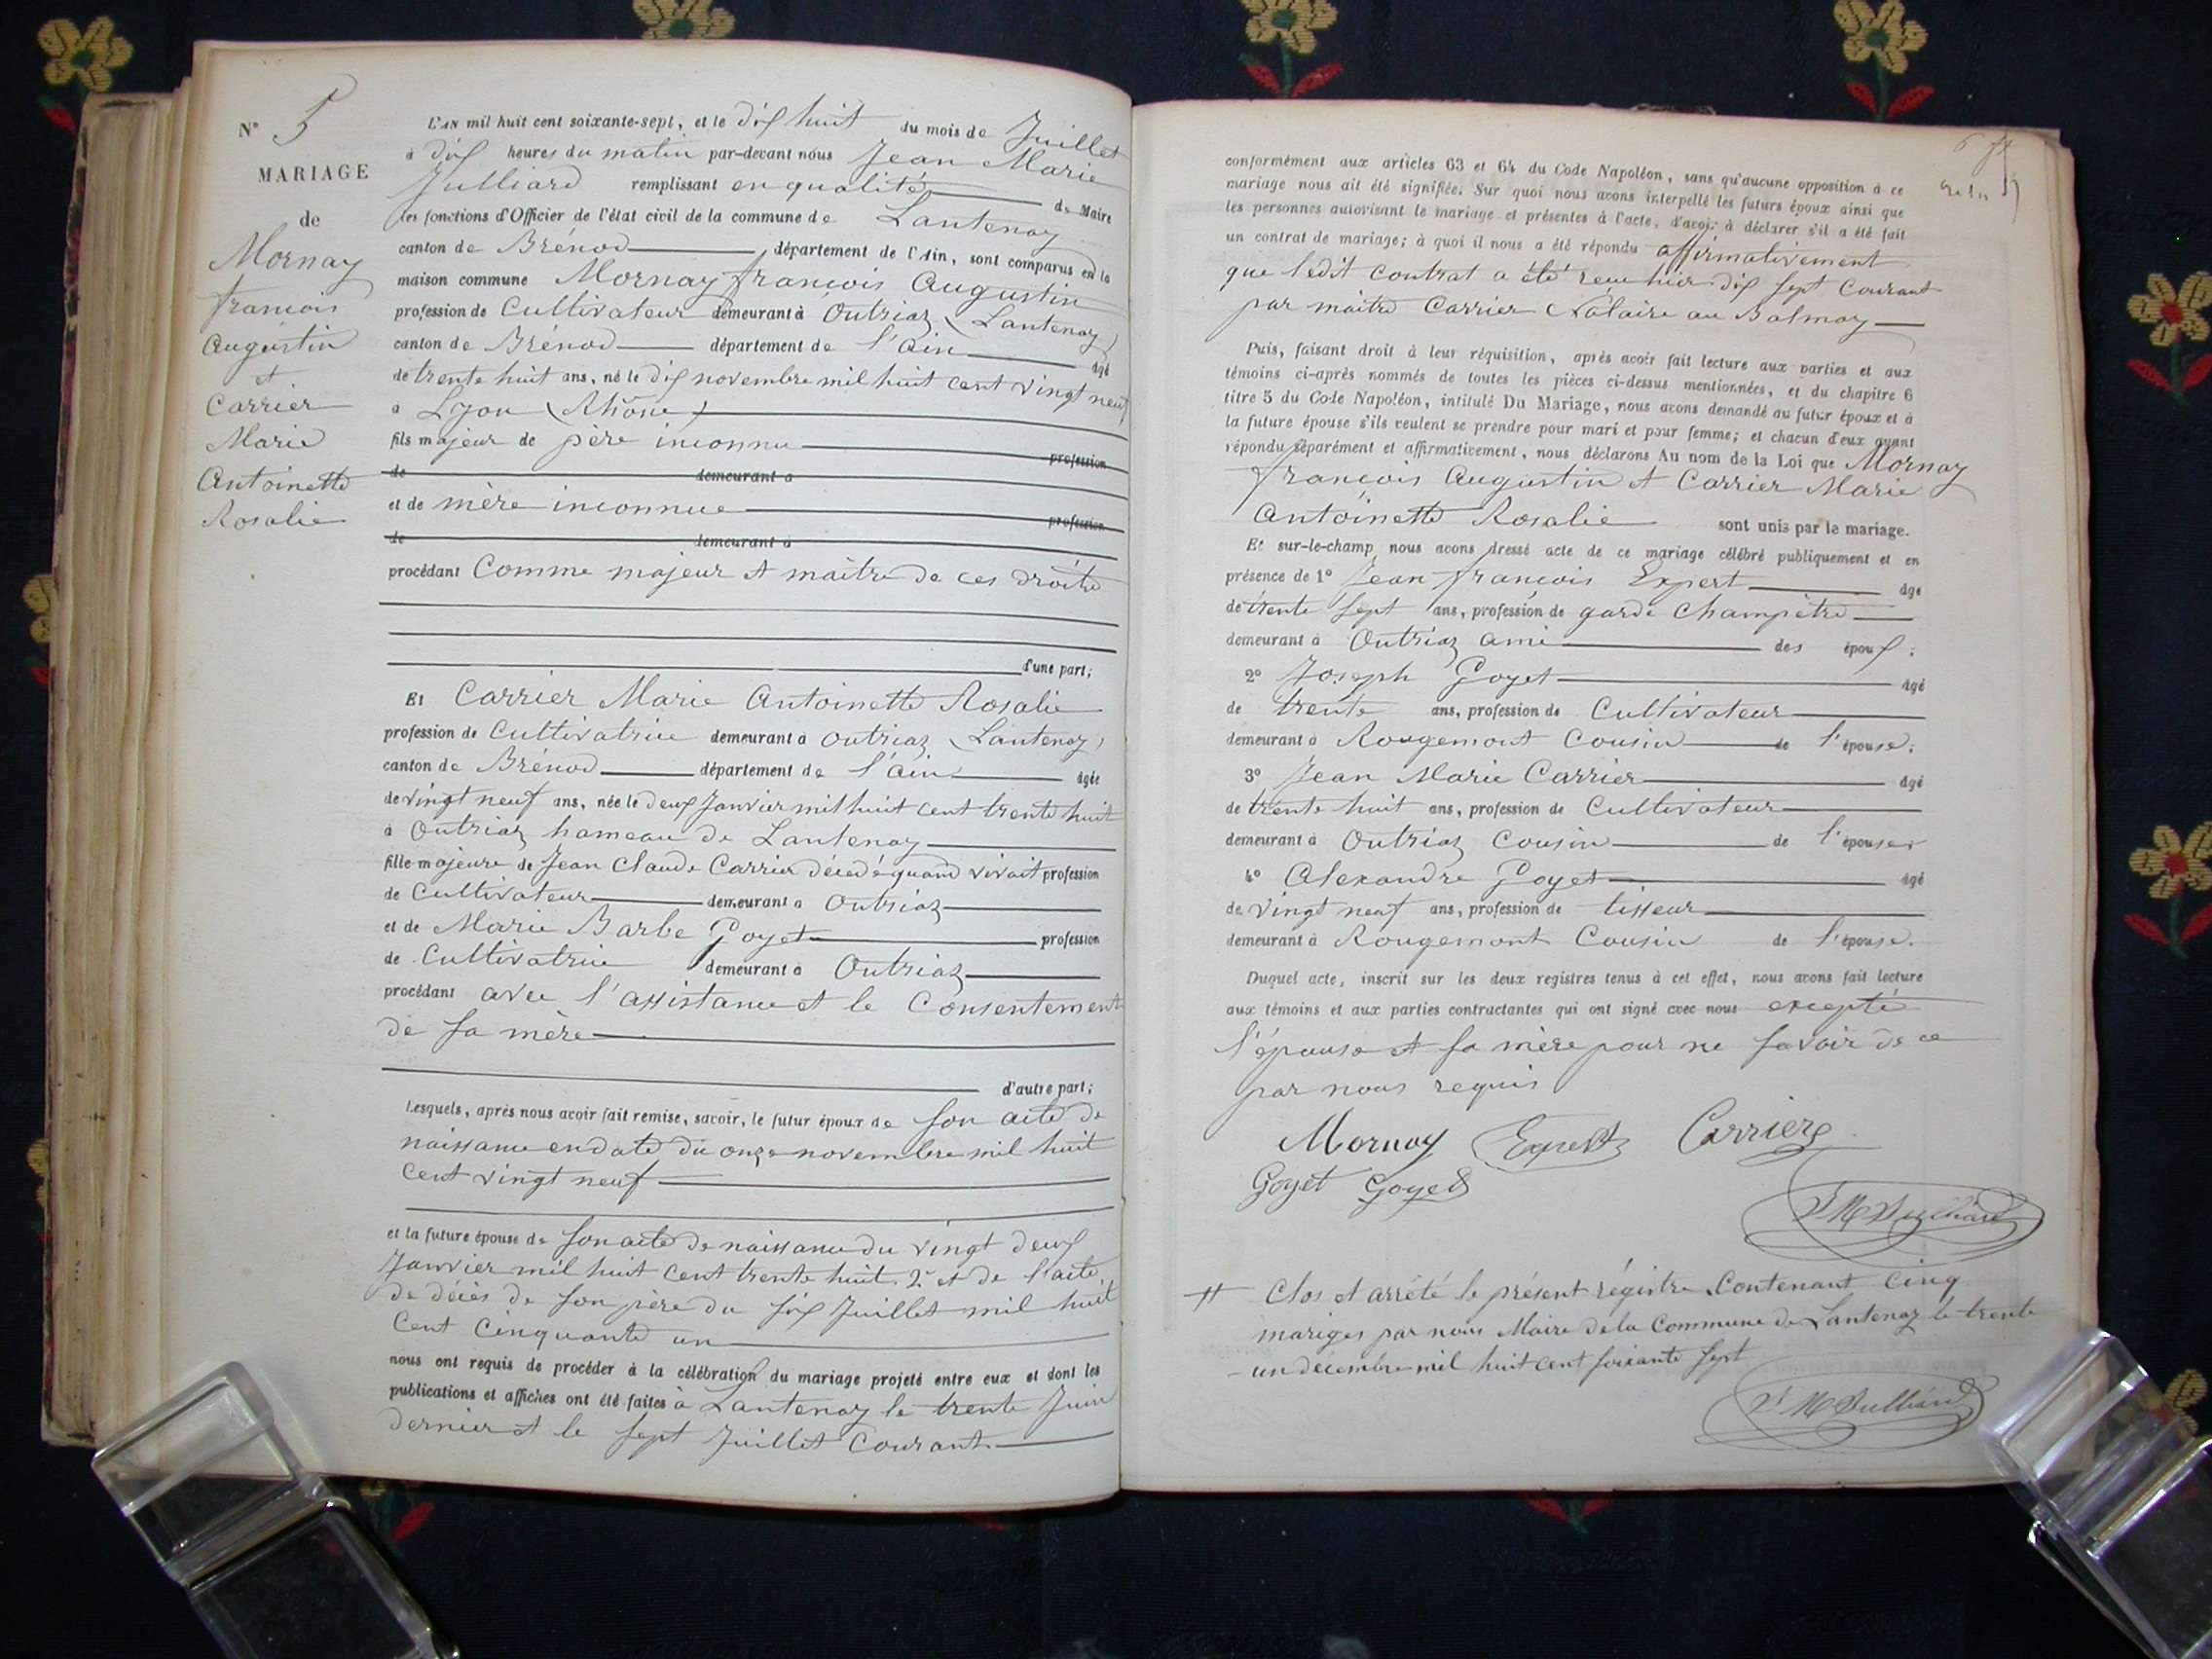 N° 5
MARIAGE
de
Mornay
françois
Augustin
et
Carrier
Marie
Antoinette
Rosalie
L'AN mil huit cent soixante-sept, et le dix huit du mois de Juillet
à dix heures du matin par-devant nous Jean Marie
Julliard remplissant en qualité de Maire
les fonctions d'Officier de l'état civil de la commune de Lantenay
canton de Brénod département de l'Ain, sont comparus en la
maison commune Mornay françois Augustin
profession de Cultivateur demeurant à Outriaz (Lantenay)
canton de Brénod département de l'ain âgé
de trente huit ans, né le dix novembre mil huit cent vingt neuf
à Lyon (Rhône)
fils majeur de père inconnu profession
de demeurant à
et de mère inconnue profession
de demeurant à
procédant Comme majeur et maître de ces droits
d'une part;
Et Carrier Marie Antoinette Rosalie
profession de Cultivatrice demeurant à outriaz (Lantenay)
canton de Brénod département de l'ain âgée
de vingt neuf ans, née le deux Janvier mil huit cent trente huit
à Outriaz hameau de Lantenay
fille majeure de Jean Claude Carrier décedé quand vivait profession
de Cultivateur demeurant à Outriaz
et de Marie Barbe Goyet profession
de Cultivatrice demeurant à Outriaz
procédant avec l'assistance et le Consentement
de sa mère
d'autre part;
Lesquels, après nous avoir fait remise, savoir, le futur époux de son acte de
naissance en date du onze novembre mil huit
cent vingt neuf
et la future épouse de son acte de naissance du vingt deux
Janvier mil huit cent trente huit. 2° et de l'acte
de décès de son père du six Juillet mil huit
cent cinquante un
nous ont requis de procéder à la célébration du mariage projeté entre eux et dont les
publications et affiches ont été faites à Lantenay le trente Juin
dernier et le sept Juillet Courant.
conformément aux articles 63 et 64 du Code Napoléon, sans qu'aucune opposition à ce
mariage nous ait été signifiée. Sur quoi nous avons interpellé les futurs époux ainsi que
les personnes autorisant le mariage et présentes à l'acte, d'avoir à déclarer s'il a été fait
un contrat de mariage; à quoi il nous a été répondu affirmativement
que ledit contrat a été reçu hier dix sept Courant
par maître Carrier Notaire au Balmay
Puis, faisant droit à leur réquisition, après avoir fait lecture aux parties et aux
témoins ci-après nommés de toutes les pièces ci-dessus mentionnées, et du chapitre 6
titre 5 du Code Napoléon, intitulé Du Mariage, nous avons demandé au futur époux et à
la future épouse s'ils veulent se prendre pour mari et pour femme; et chacun d'eux ayant
répondu séparément et affirmativement, nous déclarons Au nom de la Loi que Mornay
françois Augustin et Carrier Marie
Antoinette Rosalie sont unis par le mariage.
Et sur-le-champ nous avons dressé acte de ce mariage célébré publiquement et en
présence de 1° Jean françois Expert âgé
de trente sept ans, profession de garde Champêtre
demeurant à Outriaz ami des époux;
2° Joseph Goyet âgé
de trente ans, profession de Cultivateur
demeurant à Rougemont Cousin de l'épouse;
3° Jean Marie Carrier âgé
de trente huit ans, profession de Cultivateur
demeurant à Outriaz Cousin de l'épouse;
4° Alexandre Goyet âgé
de vingt neuf ans, profession de tisseur
demeurant à Rougemont Cousin de l'épouse.
Duquel acte, inscrit sur les deux registres tenus à cet effet, nous avons fait lecture
aux témoins et aux parties contractantes qui ont signé avec nous excepté
l'épouse et sa mère pour ne savoir de ce
par nous requis
Mornay Expert Carrier
Goyet Goyet
J M Julliard
Clos et arrêté le présent régistre Contenant Cinq
mariges par nous Maire de la Commune de Lantenay le trente
un décembre mil huit cent soixante sept
J M Julliard